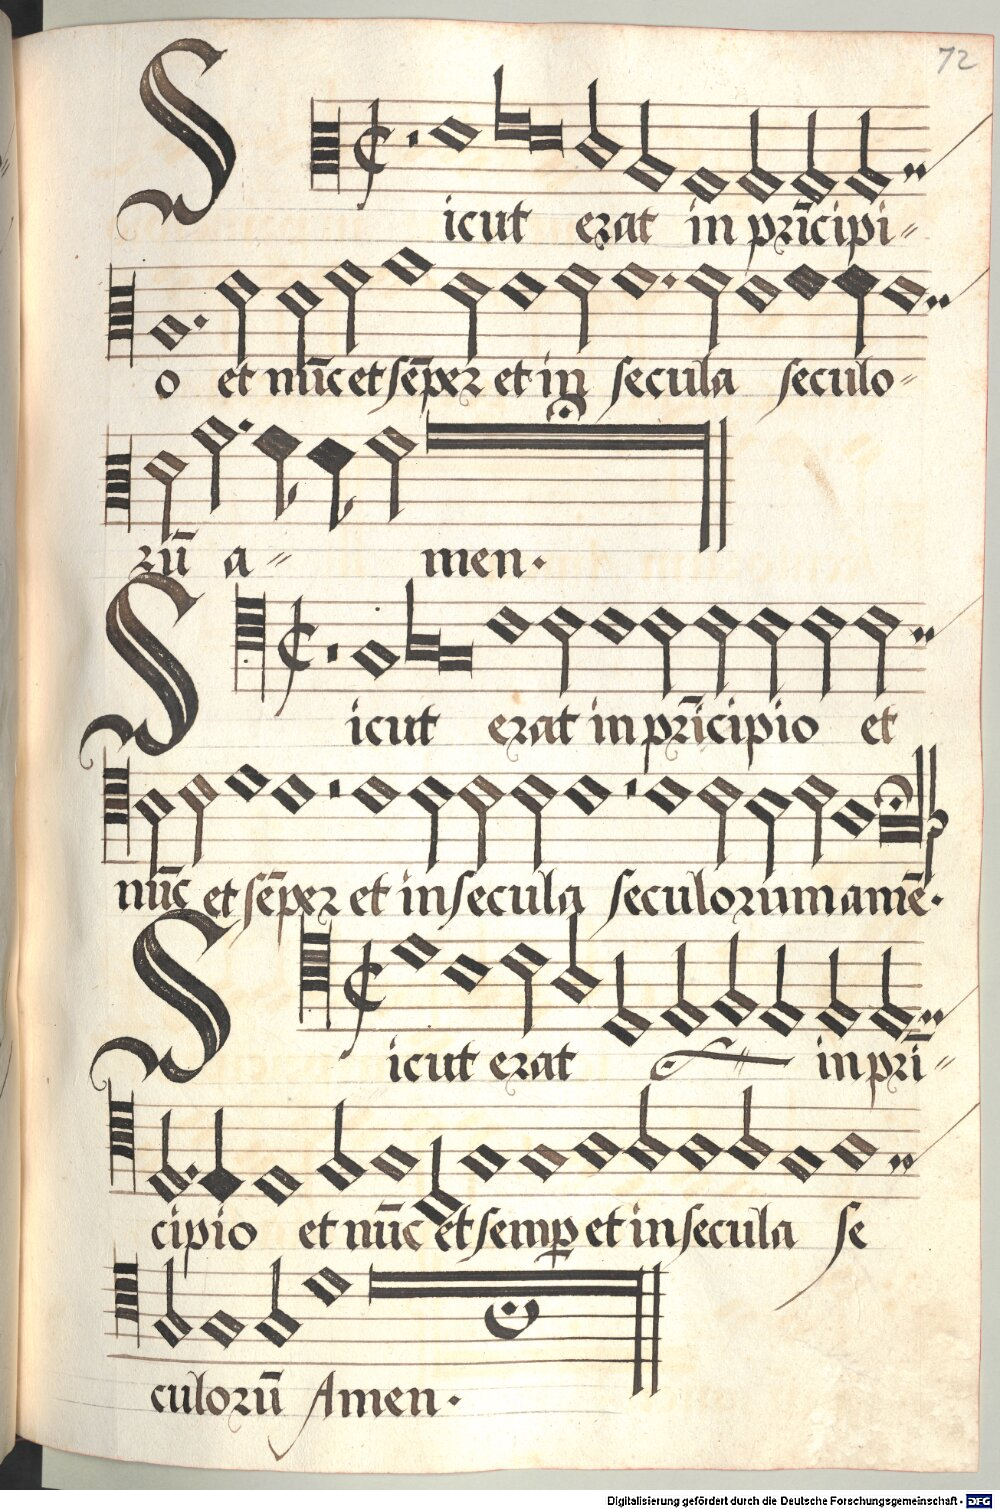 72
Sicut erat in prīcipi〃
o et nūc et sēper et in secula seculo〃
rū a〃 men.
Sicut erat in prīcipio et
nūc et sēper et in secula seculorum amē.
Sicut erat in prī〃
cipio et nūc et semp et in secula se
culorū Amen.
Digitalisierung gefördert durch die Deutsche Forschungsgemeinschaft - DFG